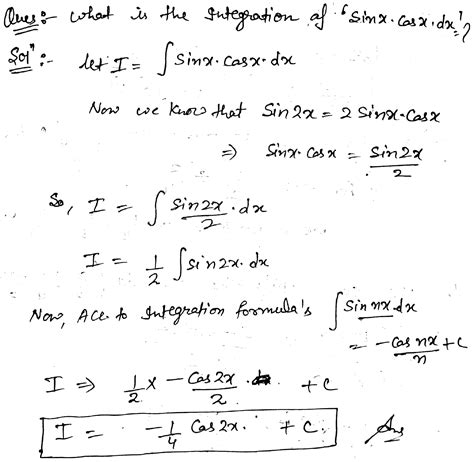 Ques:- what is the Integration of 'Sinx. Cosx.dx'?
Sol":- let I = ∫ Sinx. Cosx. dx
Now we know that Sin 2x = 2 Sinx. Cosx
⇒ Sinx. Cosx = Sin2x/2
So, I = ∫ Sin2x/2 . dx
I = 1/2 ∫ sin2x. dx
Now, Acc. to Integration formula's ∫ Sin nx dx
= -Cos nx/n + C
I ⇒ 1/2 x - Cos 2x/2 . + C
I = -1/4 Cos 2x. + C. Ans